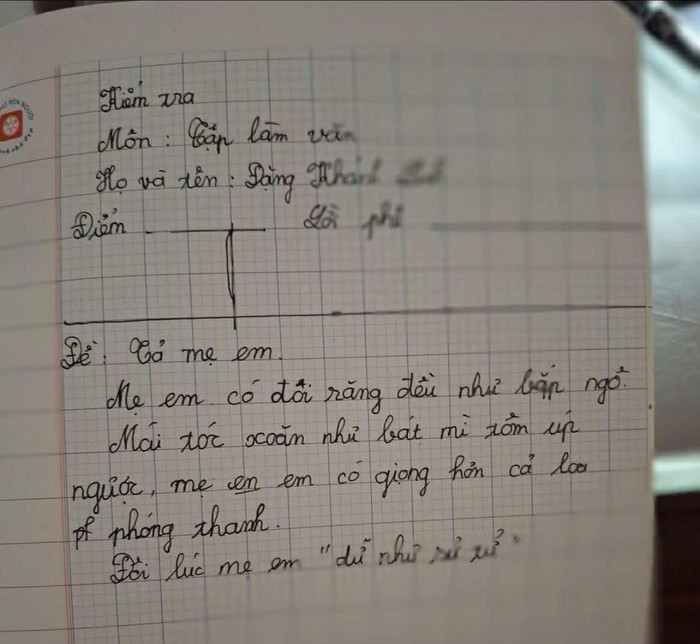 Kiểm tra
Môn: Tập làm văn
Họ và tên: Đặng Khánh
Điểm Lời phê
Đề: Tả mẹ em.
Mẹ em có đôi răng đều như bắp ngô.
Mái tóc xoăn như bát mì tôm úp
ngược, mẹ em em có giọng hơn cả loa
pf phóng thanh.
Đôi lúc mẹ em "dữ như sư tử"